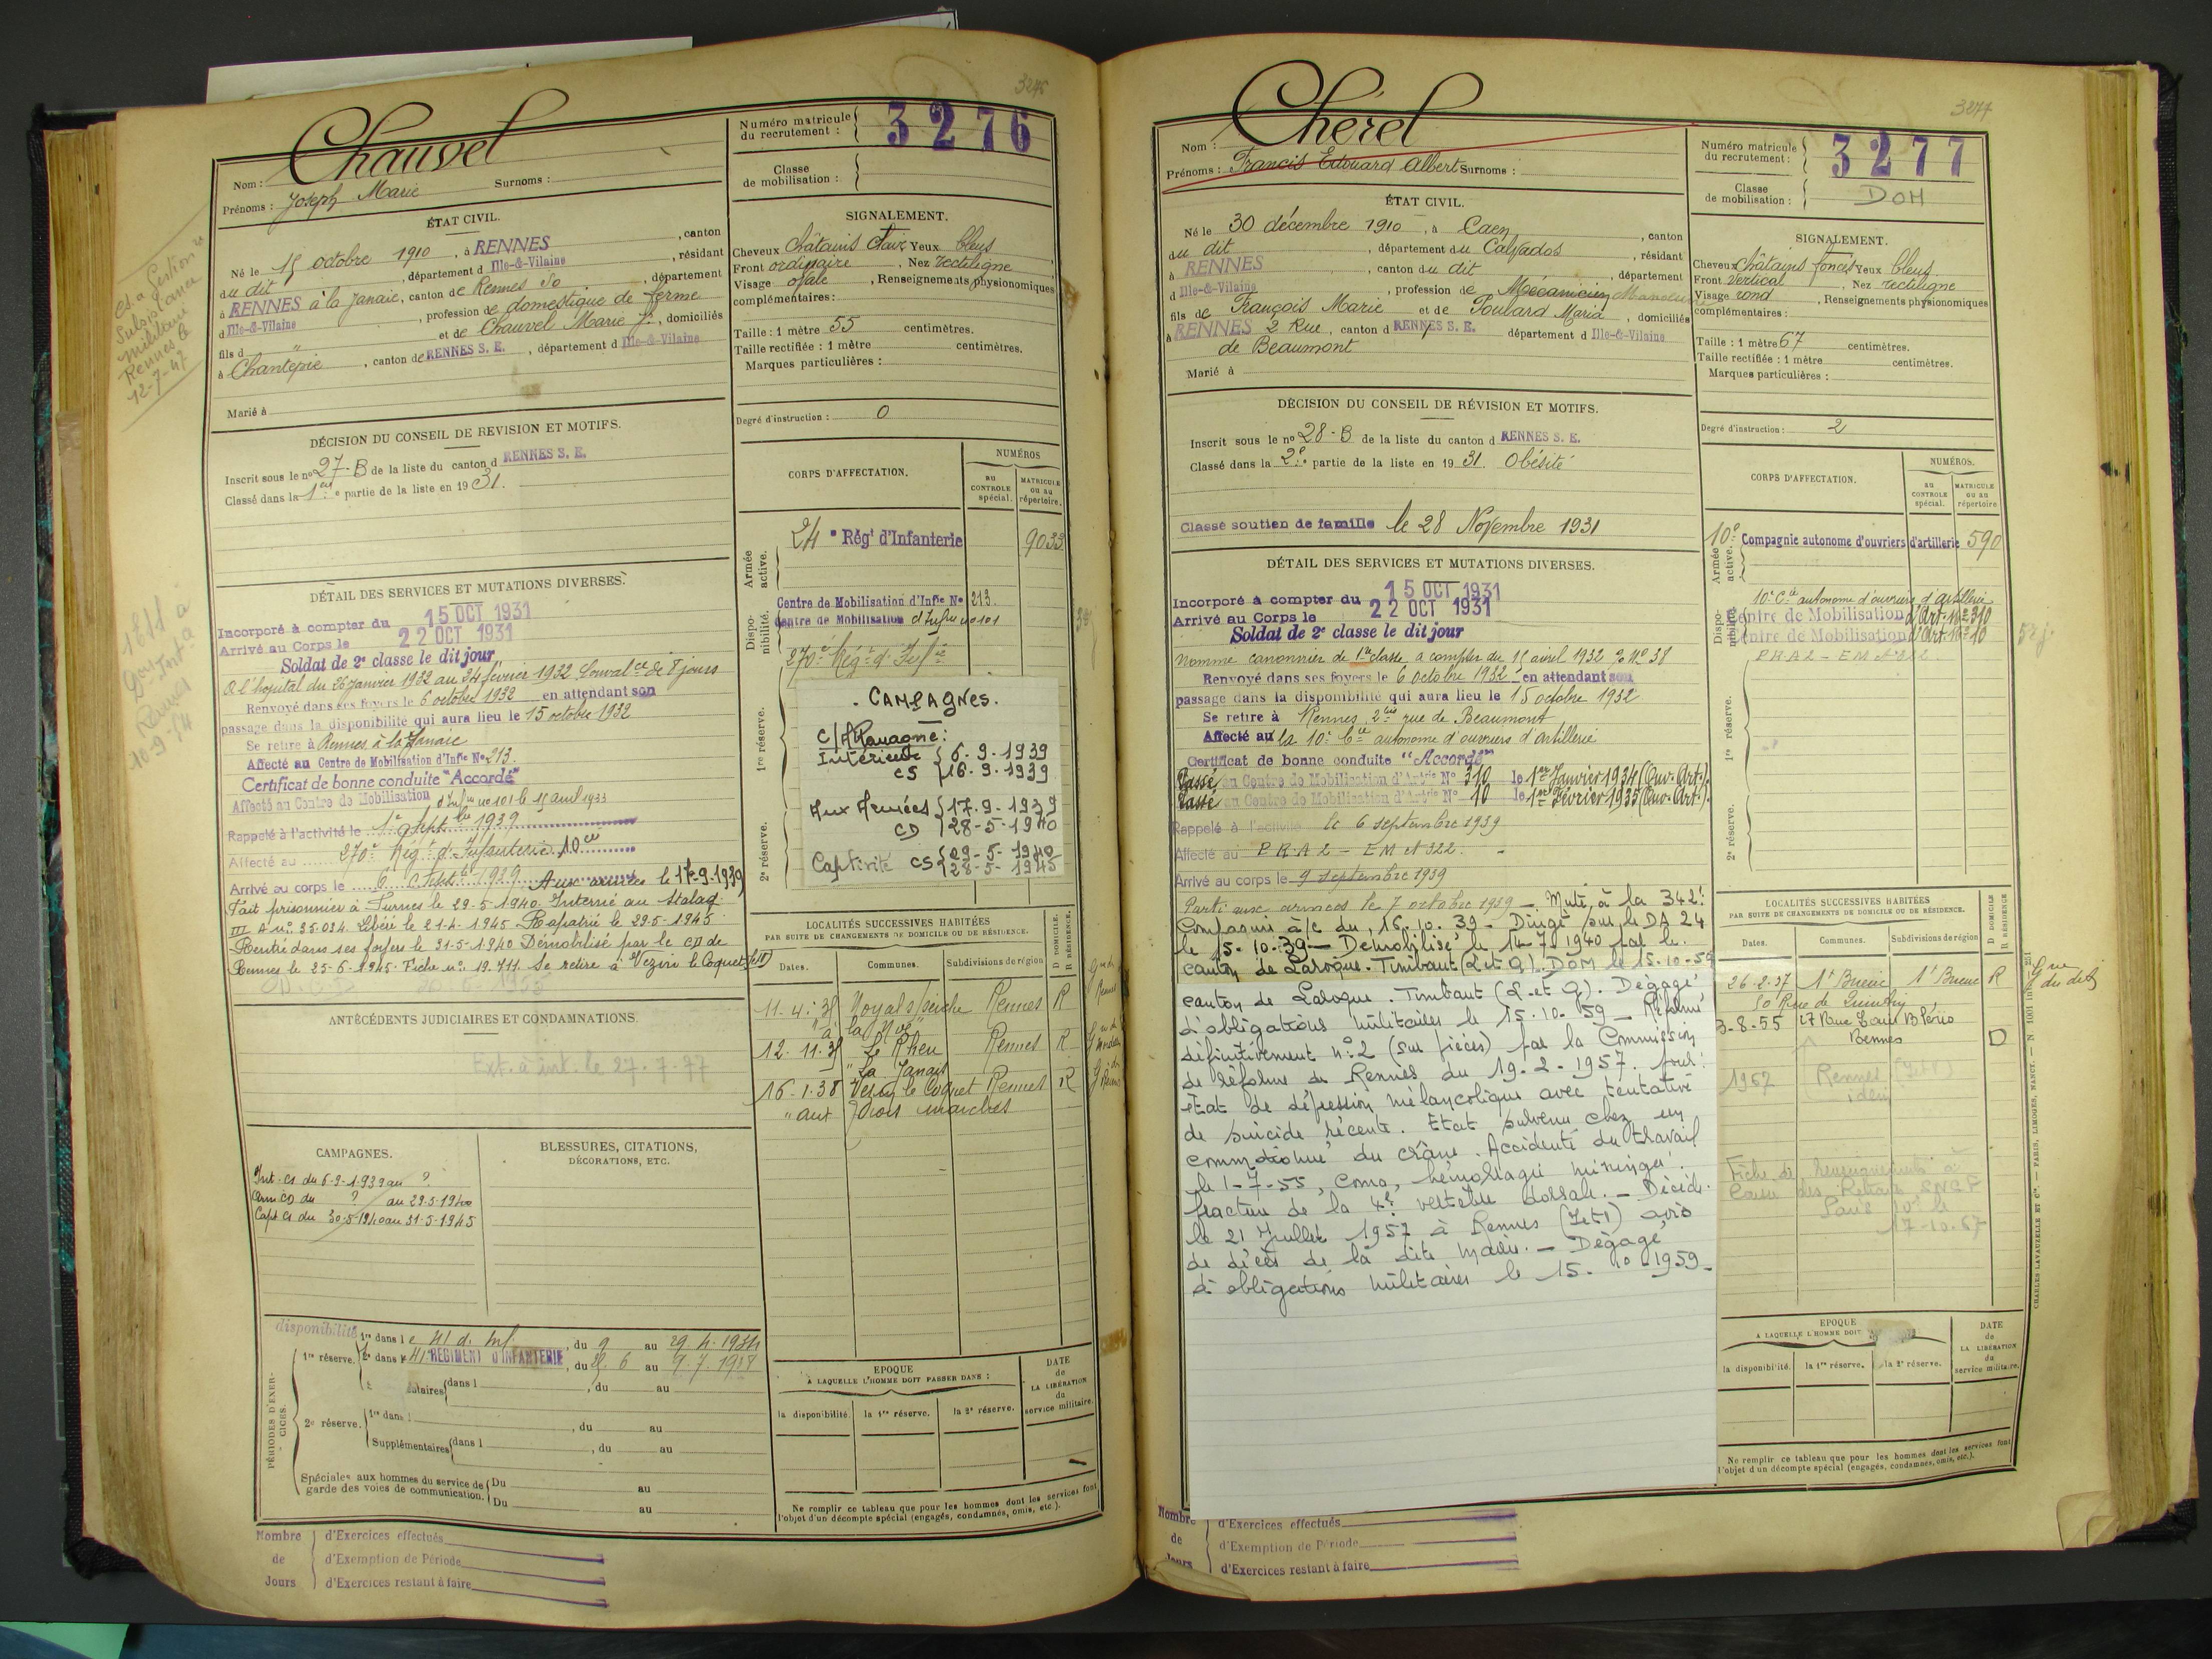 3276
Chauvel
Nom :
Prénoms : Joseph Marie Surnoms :
Numéro matricule du recrutement : 3276
Classe de mobilisation :
ÉTAT CIVIL.
Né le 15 octobre 1910, à RENNES, canton
du dit, département d Ille-&-Vilaine, résidant
à RENNES à la Janaie, canton de Rennes So, département
d Ille-&-Vilaine, profession de domestique de ferme
fils d " et de Chauvel Marie J., domiciliés
à Chantepie, canton de RENNES S. E., département d Ille-&-Vilaine
Marié à
SIGNALEMENT.
Cheveux châtains clair Yeux bleus
Front ordinaire, Nez rectiligne
Visage ovale, Renseignements physionomiques
complémentaires :
Taille : 1 mètre 55 centimètres.
Taille rectifiée : 1 mètre centimètres.
Marques particulières :
Degré d'instruction : 0
DÉCISION DU CONSEIL DE REVISION ET MOTIFS.
Inscrit sous le nº 27-B de la liste du canton d RENNES S. E.
Classé dans la 1ère partie de la liste en 1931.
CORPS D'AFFECTATION.
NUMÉROS
AU CONTROLE spécial.
MATRICULE OU AU répertoire.
Armée active.
24e Régt d'Infanterie 9033
Disponibilité.
Centre de Mobilisation d'Infie Nº 213.
Centre de Mobilisation d'Infie nº 101
270e Régt d'Infie
1re réserve.
2e réserve.
CAMPAGNES.
C/Allemagne :
Intérieur 6-9-1939
CS 16-9-1939
Aux Armées 17-9-1939
CD 28-5-1940
Captivité CS 29-5-1940
28-5-1945
DÉTAIL DES SERVICES ET MUTATIONS DIVERSES.
Incorporé à compter du 15 OCT 1931
Arrivé au Corps le 22 OCT 1931
Soldat de 2e classe le dit jour
A l'hopital du 26 janvier 1932 au 24 février 1932 Convalce de 8 jours
Renvoyé dans ses foyers le 6 octobre 1932 en attendant son
passage dans la disponibilité qui aura lieu le 15 octobre 1932
Se retire à Rennes à la Janaie
Affecté au Centre de Mobilisation d'Infie Nº 213.
Certificat de bonne conduite "Accordé"
Affecté au Centre de Mobilisation d'Infie nº 101 le 15 avril 1933
Rappelé à l'activité le 1er Septbre 1939
Affecté au 270e Régt d'Infanterie 10e Cie
Arrivé au corps le 6 Septbre 1939 Aux armées le 17-9-1939
Fait prisonnier à Furnes le 29-5-1940. Interné au Stalag
III A nº 35.034. Libéré le 21-4-1945. Rapatrié le 29-5-1945
Rentré dans ses foyers le 31-5-1940 Démobilisé par le CD de
Rennes le 25-6-1945. Fiche nº 19.711. Se retire à Vezin le Coquet (I&V)
ANTÉCÉDENTS JUDICIAIRES ET CONDAMNATIONS.
Ext. à int. le 27.7.77
CAMPAGNES.
Int. CS du 6-9-1939 au ?
Arm CD du ? au 29-5-1940
Capt CS du 30-5-1940 au 31-5-1945
BLESSURES, CITATIONS, DÉCORATIONS, ETC.
LOCALITÉS SUCCESSIVES HABITÉES
PAR SUITE DE CHANGEMENTS DE DOMICILE OU DE RÉSIDENCE.
Dates. Communes. Subdivisions de région D DOMICILE. R RÉSIDENCE.
11-4-35 Noyal s/Seiche Rennes R
12-11-35 Le Rheu Rennes R
" La Janais
16-1-38 Vezin le Coquet Rennes R
" aux Trois marches
PÉRIODES D'EXERCICES.
disponibilité 1re dans le 41 d'Inf., du 9 au 29.4.1934
1re réserve. 2e dans le 41e REGIMENT D'INFANTERIE, du au
dans l , du au
2e réserve. 1re dans l , du au
Supplémentaires dans l , du au
Spéciales aux hommes du service de garde des voies de communication. Du au
Du au
EPOQUE
A LAQUELLE L'HOMME DOIT PASSER DANS :
la disponibilité. la 1re réserve. la 2e réserve.
DATE de LA LIBÉRATION du service militaire.
Ne remplir ce tableau que pour les hommes dont les services font
l'objet d'un décompte spécial (engagés, condamnés, omis, etc.).
Nombre de Jours
d'Exercices effectués
d'Exemption de Période
d'Exercices restant à faire
3277
Chérel
Nom :
Prénoms : Francis Edouard Albert Surnoms :
Numéro matricule du recrutement : 3277
Classe de mobilisation : DOM
ÉTAT CIVIL.
Né le 30 décembre 1910, à Caen, canton
du dit, département du Calvados, résidant
à RENNES, canton du dit, département
d Ille-&-Vilaine, profession de Mécanicien Manoeuvre
fils de François Marie et de Foulard Maria, domiciliés
à RENNES 2 Rue, canton d RENNES S. E. département d Ille-&-Vilaine
de Beaumont
Marié à
SIGNALEMENT.
Cheveux châtains foncés Yeux bleus
Front vertical, Nez rectiligne
Visage rond, Renseignements physionomiques
complémentaires :
Taille : 1 mètre 67 centimètres.
Taille rectifiée : 1 mètre centimètres.
Marques particulières :
Degré d'instruction : 2
DÉCISION DU CONSEIL DE RÉVISION ET MOTIFS.
Inscrit sous le nº 28-B de la liste du canton d RENNES S. E.
Classé dans la 2e partie de la liste en 1931. Obésité
Classé soutien de famille le 28 Novembre 1931
CORPS D'AFFECTATION.
NUMÉROS.
AU CONTROLE spécial.
MATRICULE OU AU répertoire
Armée active.
10e Compagnie autonome d'ouvriers d'artillerie 590
Disponibilité.
10e Cie autonome d'ouvriers d'artillerie
Centre de Mobilisation d'Art. Nº 310
Centre de Mobilisation d'Art. Nº 10
PRA2 - EM Nº 322
1re réserve.
2e réserve.
DÉTAIL DES SERVICES ET MUTATIONS DIVERSES.
Incorporé à compter du 15 OCT 1931
Arrivé au Corps le 22 OCT 1931
Soldat de 2e classe le dit jour
Nommé canonnier de 1ère classe à compter du 15 avril 1932 Nº 38
Renvoyé dans ses foyers le 6 octobre 1932 en attendant son
passage dans la disponibilité qui aura lieu le 15 octobre 1932
Se retire à Rennes 2bis rue de Beaumont
Affecté au la 10e Cie autonome d'ouvriers d'artillerie
Certificat de bonne conduite "Accordé"
Passé au Centre de Mobilisation d'Artrie Nº 310 le 1er Janvier 1934 (Ouv. Art.).
Passé au Centre de Mobilisation d'Artrie Nº 10 le 1er Février 1935 (Ouv. Art.).
Rappelé à l'activité le 6 septembre 1939
Affecté au P.R.A 2 - EM Nº 322.
Arrivé au corps le 9 septembre 1939
Parti aux armées le 7 octobre 1939 - Muté à la 342e
Compagnie à/c du 16.10.39 - Dirigé sur le DA 24
le 15-10-39 - Démobilisé le 14-7-1940 par le
canton de Laroque-Timbaut (L et G). DOM le 15-10-59
canton de Laroque-Timbaut (L et G). Dégagé
d'obligations militaires le 15-10-59 - Réformé
définitivement nº 2 (sur pièces) par la Commission
de réforme de Rennes du 19-2-1957 pour :
état de dépression mélancolique avec tentative
de suicide récente. Etat survenu chez un
commotionné du crâne. Accidenté du travail
le 1-7-55, coma, hémorragie méningée.
fracture de la 4e vertèbre dorsale. - Décédé
le 21 Juillet 1957 à Rennes (I et V) avis
de décès de la dite Mairie. - Dégagé
d'obligations militaires le 15-10-1959-
LOCALITÉS SUCCESSIVES HABITÉES
PAR SUITE DE CHANGEMENTS DE DOMICILE OU DE RÉSIDENCE.
Dates. Communes. Subdivisions de région D DOMICILE R RÉSIDENCE
26-2-37 St Brieuc St Brieuc R
50 Rue de Quintin
3-8-55 27 Rue Rennes D
1967 Rennes (I et V)
idem
Fiche de renseignements à
Caisse des Retraites SNCF
Paris 10e le
17-10-67
EPOQUE
A LAQUELLE L'HOMME DOIT
la disponibilité. la 1re réserve. la 2e réserve.
DATE de LA LIBÉRATION du service militaire.
Ne remplir ce tableau que pour les hommes dont les services font
l'objet d'un décompte spécial (engagés, condamnés, omis, etc.).
Nombre de Jours
d'Exercices effectués
d'Exemption de Période
d'Exercices restant à faire
CHARLES LAVAUZELLE ET Cie. — PARIS, LIMOGES, NANCY.